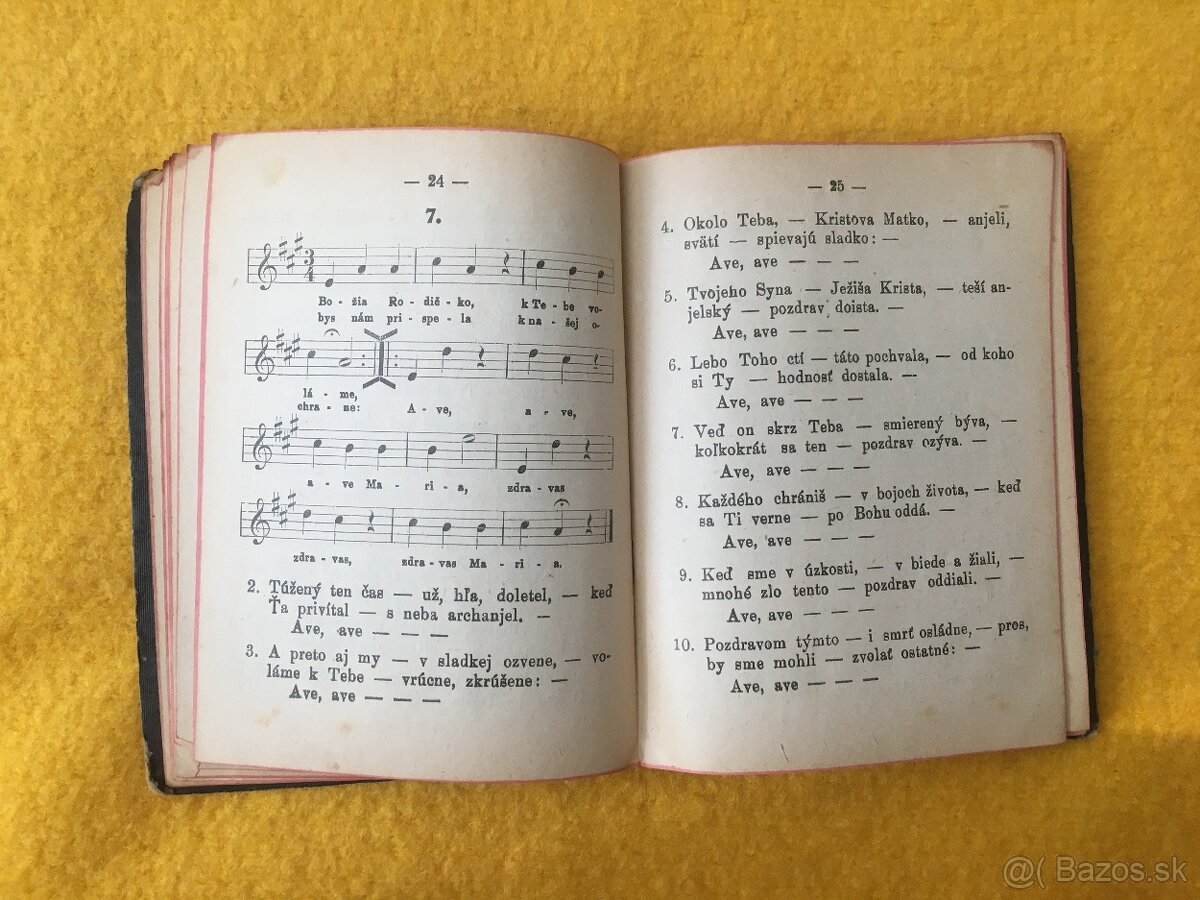 — 24 —
7.
3
4
Bo - žia Ro - dič - ko, k Te - be vo-
bys nám pri - spe - la k na - šej o-
lá - me,
chra - ne: A - ve, a - ve,
a - ve Ma - ri - a, zdra - vas
zdra - vas, zdra - vas Ma - ri - a.
2. Túžený ten čas — už, hľa, doletel, — keď
Ťa privítal — s neba archanjel. —
Ave, ave — — —
3. A preto aj my — v sladkej ozvene, — vo-
láme k Tebe — vrúcne, zkrúšene: —
Ave, ave — — —
— 25 —
4. Okolo Teba, — Kristova Matko, — anjeli,
svätí — spievajú sladko: —
Ave, ave — — —
5. Tvojeho Syna — Ježiša Krista, — teší an-
jelský — pozdrav doista. —
Ave, ave — — —
6. Lebo Toho ctí — táto pochvala, — od koho
si Ty — hodnosť dostala. —
Ave, ave — — —
7. Veď on skrz Teba — smierený býva, —
koľkokrát sa ten — pozdrav ozýva. —
Ave, ave — — —
8. Každého chrániš — v bojoch života, — keď
sa Ti verne — po Bohu oddá. —
Ave, ave — — —
9. Keď sme v úzkosti, — v biede a žiali, —
mnohé zlo tento — pozdrav oddiali. —
Ave, ave — — —
10. Pozdravom týmto — i smrť osládne, — pros,
by sme mohli — zvolať ostatné: —
Ave, ave — — —
@( Bazos.sk